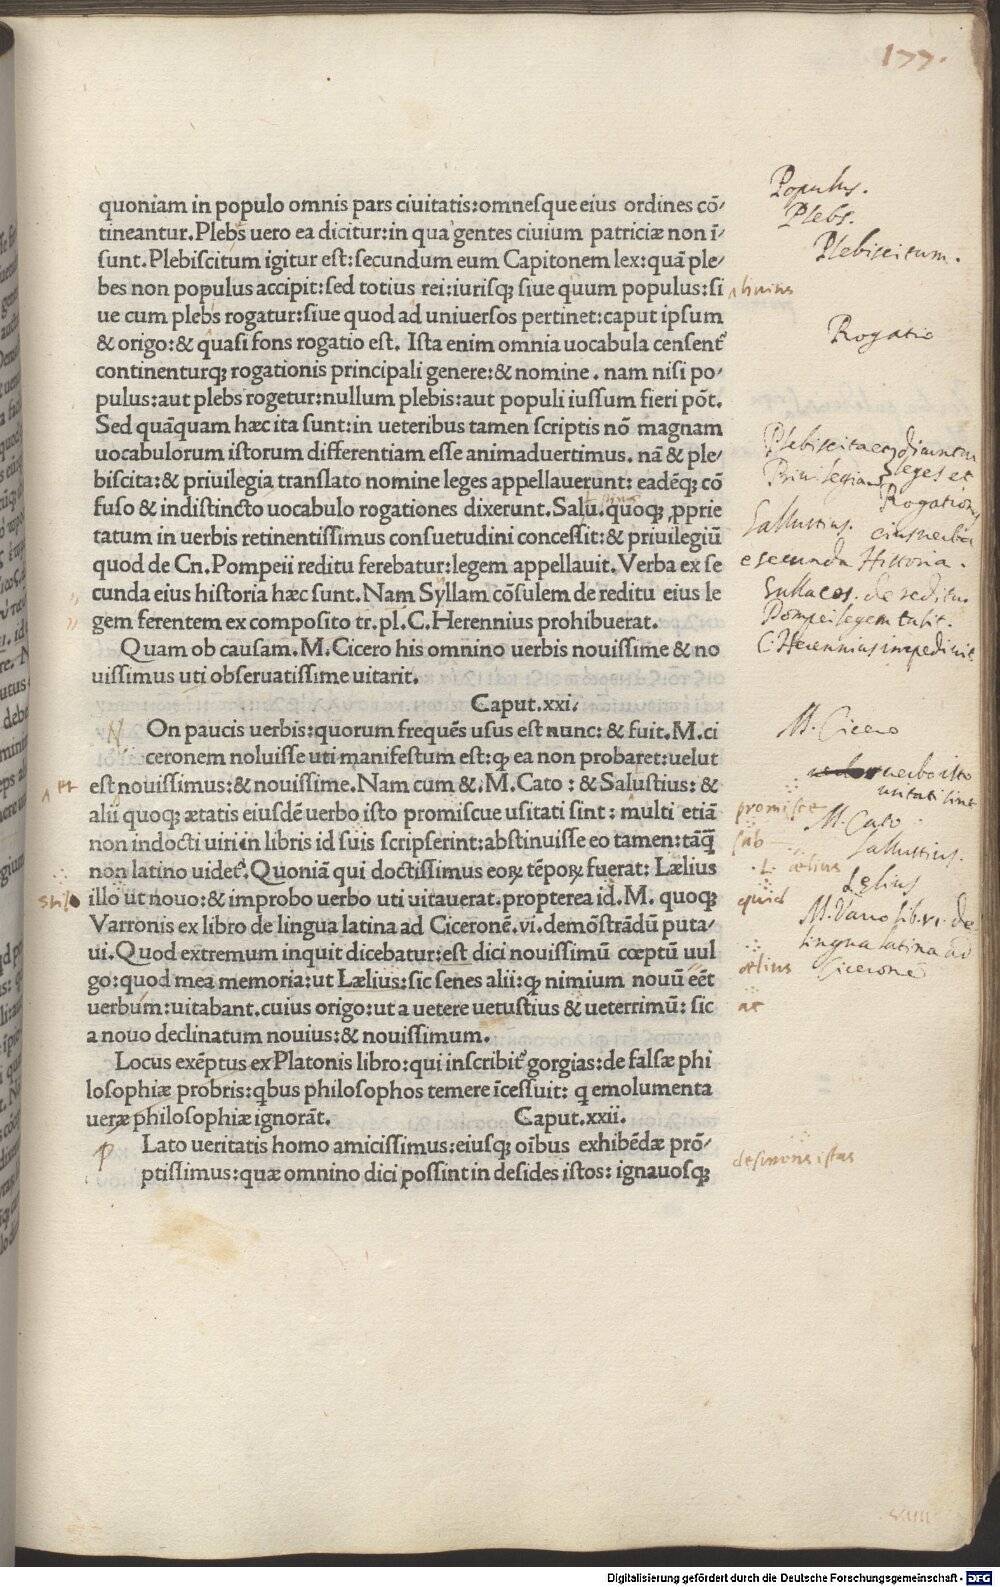 177.
quoniam in populo omnis pars ciuitatis:omnesque eius ordines cō-
tineantur.Plebs uero ea dicitur:in qua gentes ciuium patriciæ non ī-
sunt.Plebiscitum igitur est:secundum eum Capitonem lex:quā ple-
bes non populus accipit:sed totius rei:iurisqꝫ siue quum populus:si
ue cum plebs rogatur:siue quod ad uniuersos pertinet:caput ipsum
& origo:& quasi fons rogatio est. Ista enim omnia uocabula censent᷑
continenturqꝫ rogationis principali genere:& nomine. nam nisi po-
pulus:aut plebs rogetur:nullum plebis:aut populi iussum fieri pōt.
Sed quāquam hæc ita sunt:in ueteribus tamen scriptis nō magnam
uocabulorum istorum differentiam esse animaduertimus. nā & ple-
biscita:& priuilegia translato nomine leges appellauerunt: eadēqꝫ cō
fuso & indistincto uocabulo rogationes dixerunt. Salu. quoqꝫ ꝓprie
tatum in uerbis retinentissimus consuetudini concessit:& priuilegiū
quod de Cn.Pompeii reditu ferebatur:legem appellauit. Verba ex se
cunda eius historia hæc sunt. Nam Syllam cōsulem de reditu eius le
gem ferentem ex composito tr.pl.C.Herennius prohibuerat.
Quam ob causam.M.Cicero his omnino uerbis nouissime & no
uissimus uti obseruatissime uitarit.
Caput.xxi.
N
On paucis uerbis:quorum frequēs usus est nunc:& fuit.M.ci
ceronem noluisse uti manifestum est:ꝙ ea non probaret:uelut
est nouissimus:& nouissime. Nam cum &.M.Cato:& Salustius:&
alii quoqꝫ ætatis eiusdē uerbo isto promiscue usitati sint: multi etiā
non indocti uiri in libris id suis scripserint:abstinuisse eo tamen:tāq̄
non latino uidet᷑.Quoniā qui doctissimus eoꝝ tēpoꝝ fuerat: Lælius
illo ut nouo:& improbo uerbo uti uitauerat.propterea id.M. quoqꝫ
Varronis ex libro de lingua latina ad Ciceronē.vi.demōstrādū puta-
ui.Quod extremum inquit dicebatur:est dici nouissimū cœptū uul
go:quod mea memoria:ut Lælius:sic senes alii:ꝙ nimium nouū eēt
uerbum:uitabant.cuius origo:ut a uetere uetustius & ueterrimū: sic
a nouo declinatum nouius:& nouissimum.
Locus exēptus ex Platonis libro:qui inscribit᷑ gorgias:de falsæ phi
losophiæ probris:qbus philosophos temere īcessuit: q emolumenta
ueræ philosophiæ ignorāt.
Caput.xxii.
P
Lato ueritatis homo amicissimus:eiusqꝫ oībus exhibēdæ prō-
ptissimus:quæ omnino dici possint in desides istos: ignauosqꝫ
Populus.
Plebs.
Plebiscitum.
Rogatio
Plebiscita
leges et
Priuilegia
Rogationes
Sallustius. eius uerba
e secunda Historia.
Sulla cos. de reditu
Pompei legem tulit.
C. Herennius impediuit
M. Cicero
uerbo isto
usitati sint
promisce
M. Cato
Sallustius.
L. ælius
Lelius
quid
M. Varro lib. vi. de
lingua latina ad
Cicerone
ælius
ac
et
desinonis istas
Digitalisierung gefördert durch die Deutsche Forschungsgemeinschaft - DFG